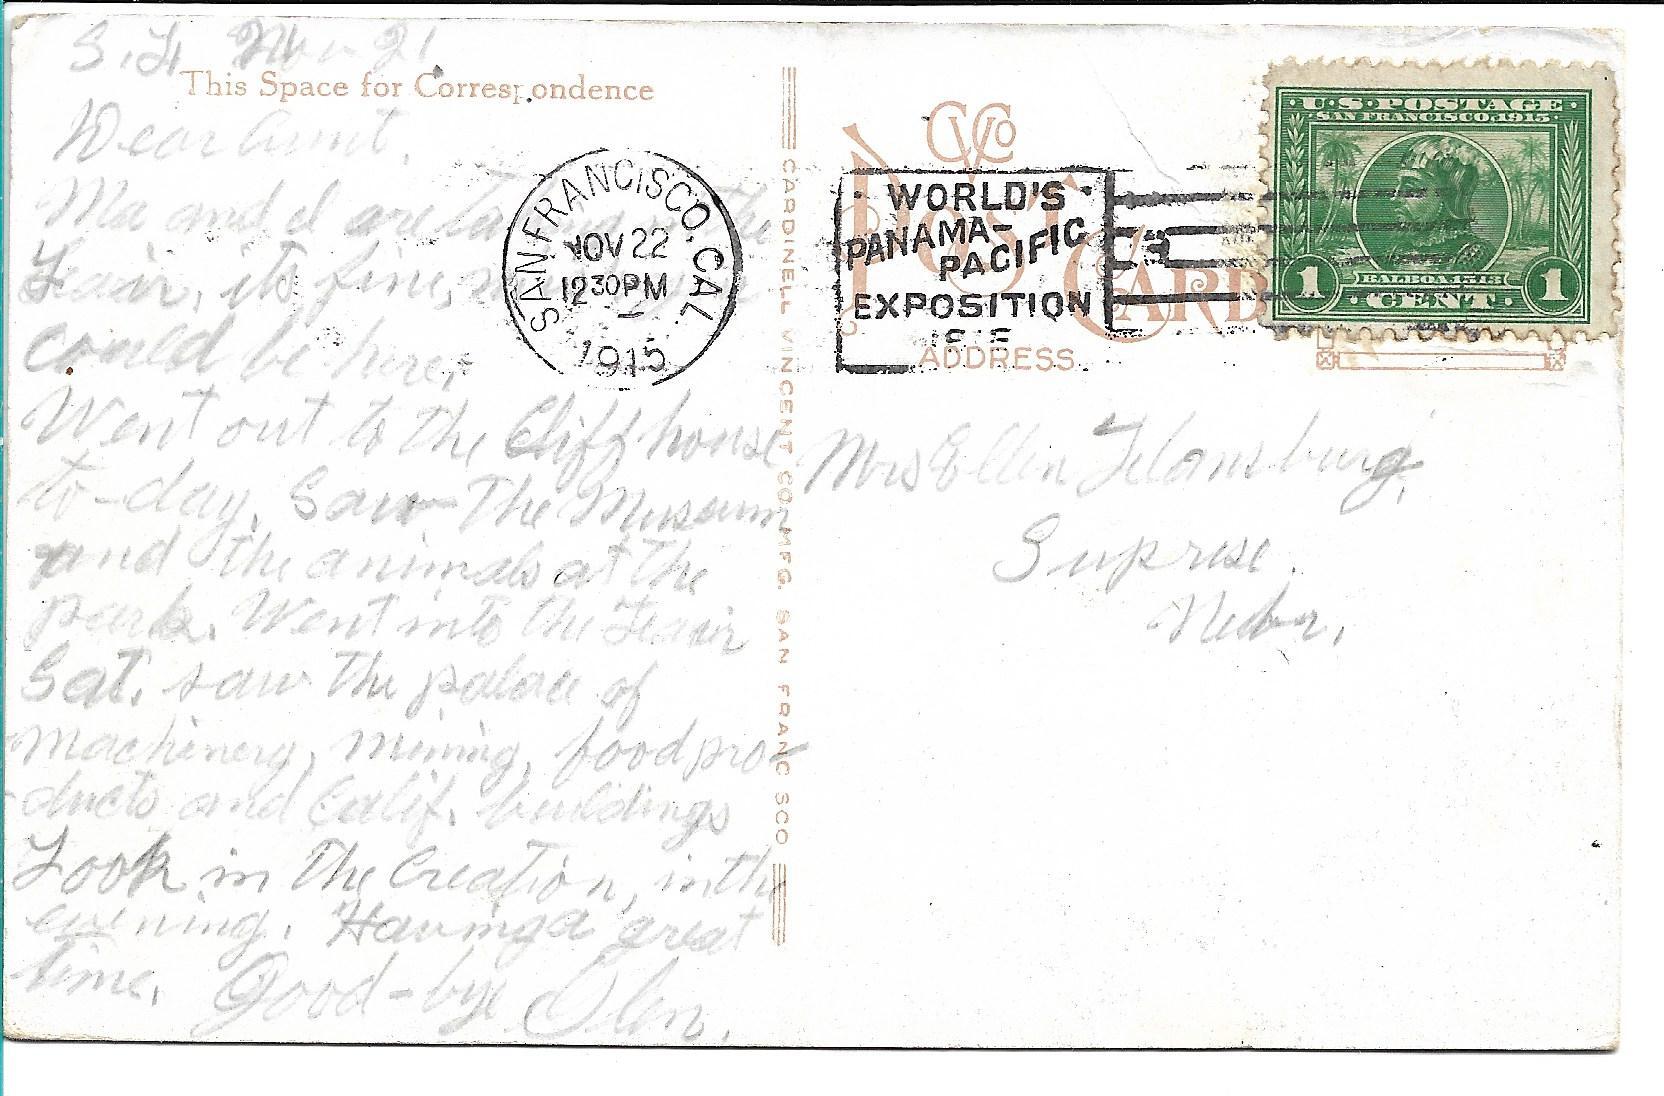 S.F. Nov 21
This Space for Correspondence
Dear Aunt,
Ma and I are taking in the
Fair, its fine,
could be here,
Went out to the Cliff house
to-day. Saw The Museum
and the animals at the
park. Went into the Fair
Sat. saw the palace of
Machinery, mining, food pro-
ducts and Calif. buildings
Took in the Creation, in the
evening. Having a great
time. Good-bye Olen.
SAN FRANCISCO, CAL.
NOV 22
12 30 PM
1915
CARDINELL VINCENT CO. MFG. SAN FRANCISCO
CVCo
POST CARD
WORLD'S
PANAMA-
PACIFIC
EXPOSITION
1915
ADDRESS
U.S. POSTAGE
SAN FRANCISCO 1915
BALBOA 1513
1 CENT 1
Mrs Ellen Flansburg,
Suprise.
Nebr.